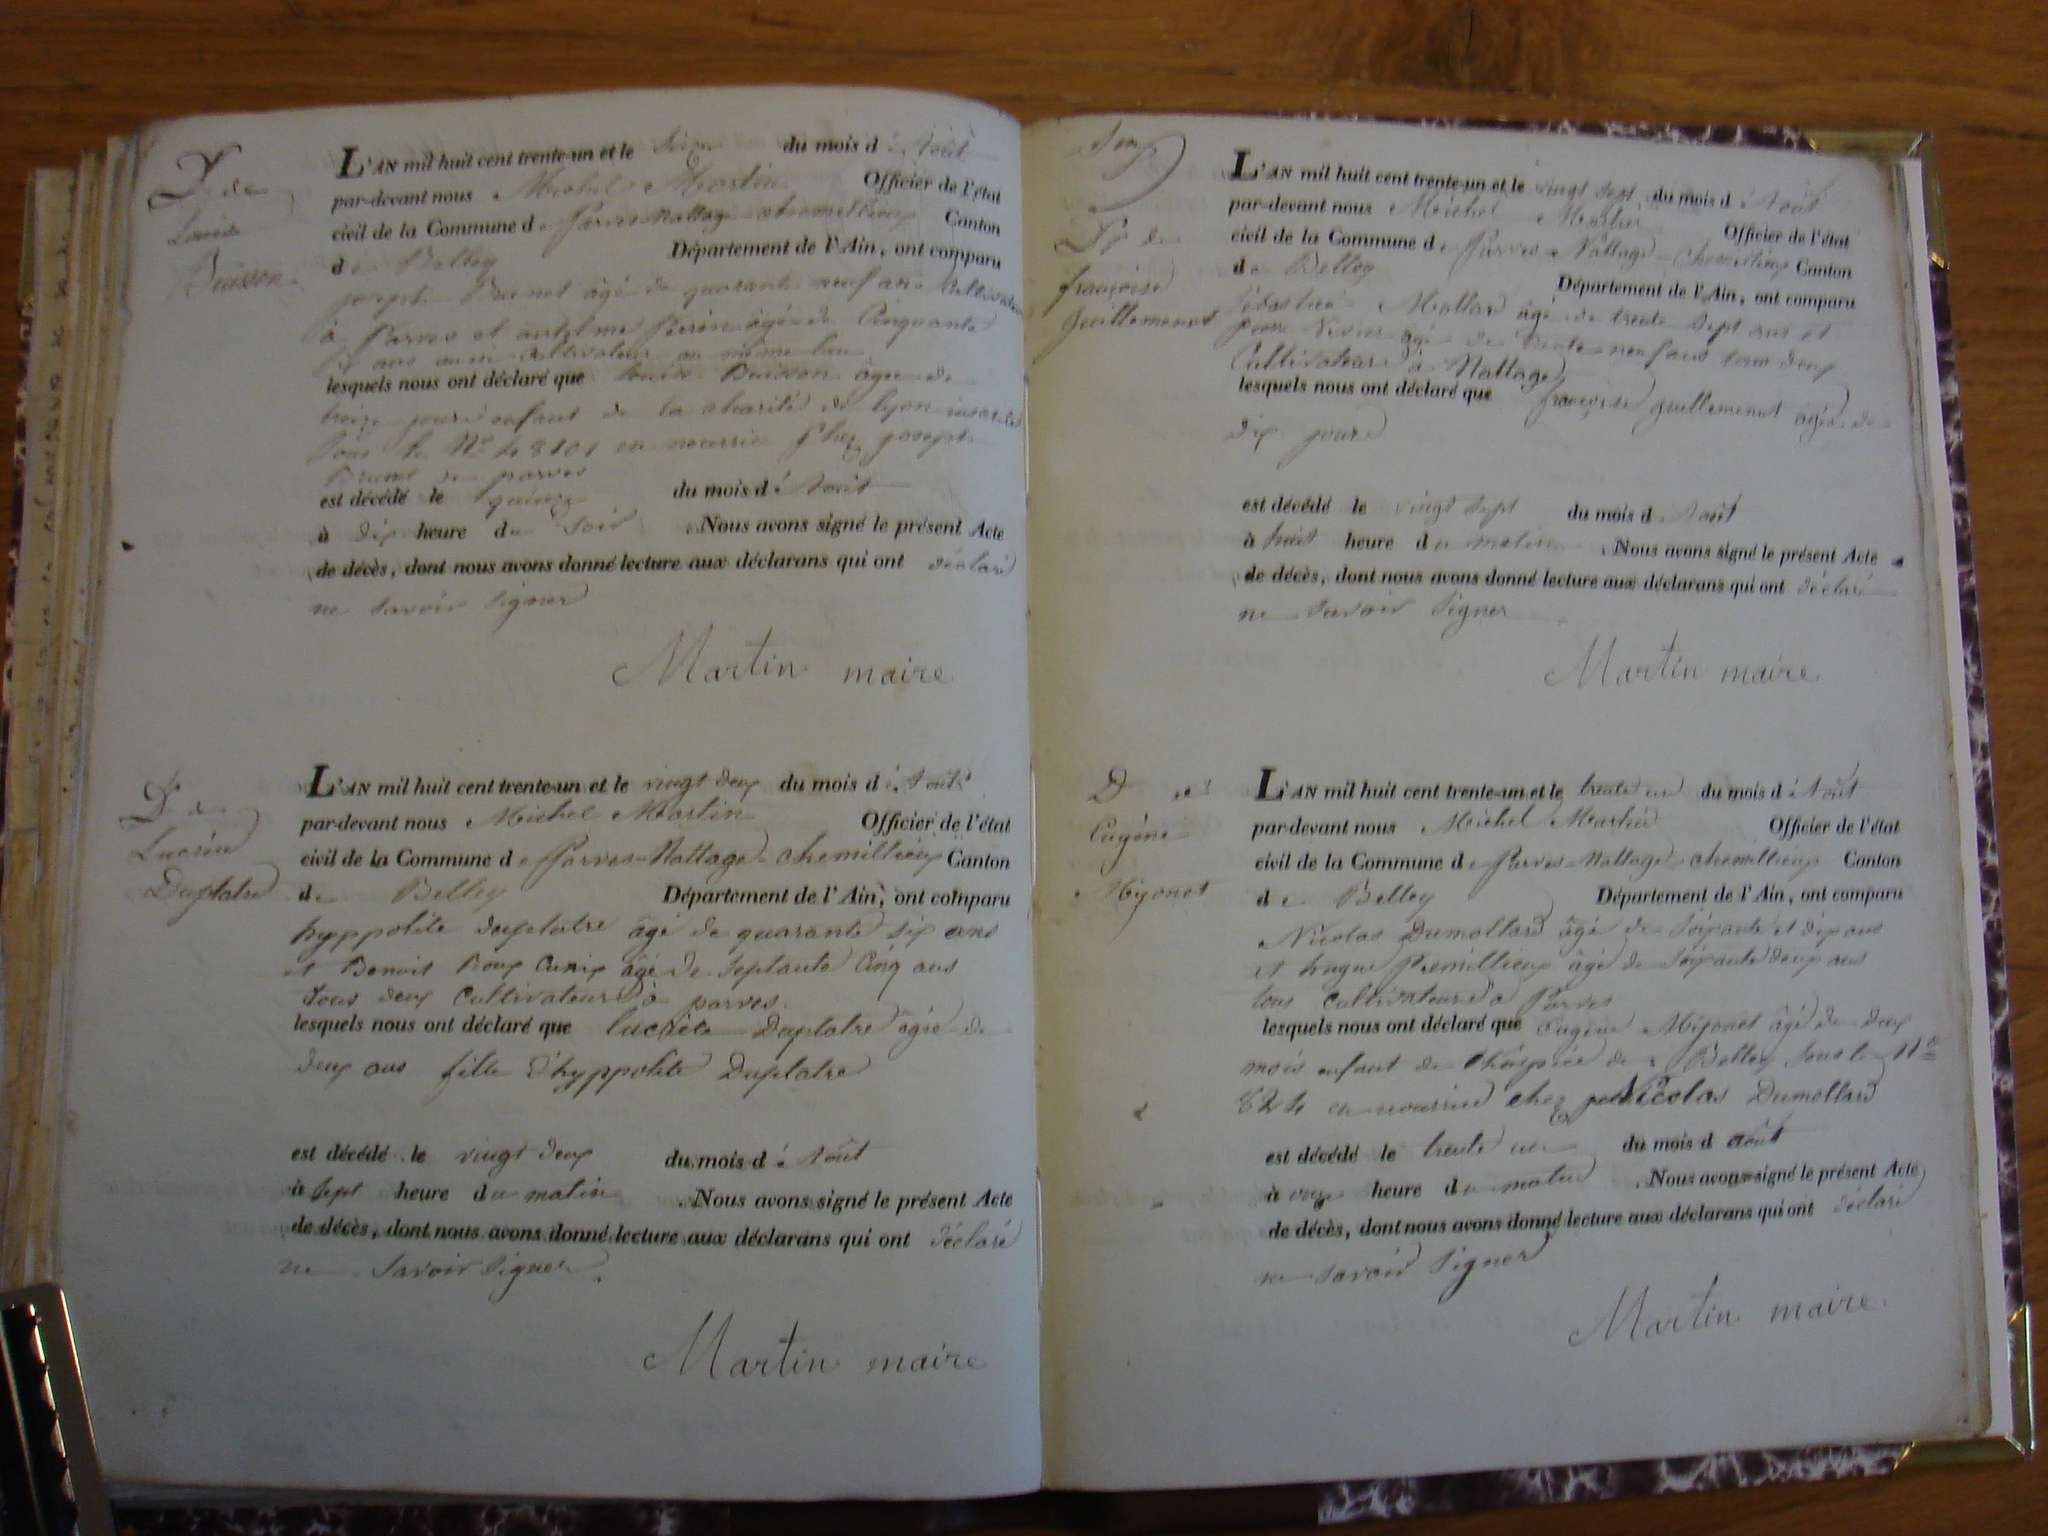 D. de
Louise
Buisson
L'AN mil huit cent trente-un et le Seize du mois d'Août
par-devant nous Michel Martin Officier de l'état
civil de la Commune de Parves-Nattage-chemillieux Canton
de Belley Département de l'Ain, ont comparu
joseph Brunet âgé de quarante neuf ans Cultivateur
à Parves et antelme Perrin âgé de Cinquante
six ans aussi Cultivateur au même lieu
lesquels nous ont déclaré que louise Buisson âgée de
treize jours enfant de la charité de lyon
sous le No 48101 en nourrice chez joseph
Brunet de parves
est décédé le quinze du mois d'Août
à dix heure du Soir Nous avons signé le présent Acte
de décès, dont nous avons donné lecture aux déclarans qui ont déclaré
ne savoir signer
Martin maire
D. de
Lucrèce
Duplatre
L'AN mil huit cent trente-un et le vingt deux du mois d'Août
par-devant nous Michel Martin Officier de l'état
civil de la Commune de Parves-Nattage-chemillieux Canton
de Belley Département de l'Ain, ont comparu
hyppolite duplatre âgé de quarante six ans
et Benoit Roux Cunix âgé de Septante Cinq ans
tous deux Cultivateurs à parves.
lesquels nous ont déclaré que lucrèce Duplatre âgée de
deux ans fille d'hyppolite Duplatre
est décédé le vingt deux du mois d'Août
à Sept heure du matin Nous avons signé le présent Acte
de décès, dont nous avons donné lecture aux déclarans qui ont déclaré
ne Savoir Signer.
Martin maire
D. de
françoise
guillemenot
L'AN mil huit cent trente-un et le vingt sept du mois d'Août
par-devant nous Michel Martin Officier de l'état
civil de la Commune de Parves-Nattage-chemillieux Canton
de Belley Département de l'Ain, ont comparu
Sébastien Mollar âgé de trente sept ans et
âgé de trente neuf ans tous deux
Cultivateurs à Nattage
lesquels nous ont déclaré que françoise guillemenot âgée de
dix jours
est décédé le vingt sept du mois d'Août
à huit heure du matin Nous avons signé le présent Acte
de décès, dont nous avons donné lecture aux déclarans qui ont déclaré
ne Savoir Signer
Martin maire
D. d'
Eugène
Mijonet
L'AN mil huit cent trente-un et le trente un du mois d'Août
par-devant nous Michel Martin Officier de l'état
civil de la Commune de Parves-Nattage-chemillieux Canton
de Belley Département de l'Ain, ont comparu
Nicolas Dumollard âgé de Soixante et dix ans
et hugue Premillieux âgé de Soixante deux ans
tous cultivateurs à Parves
lesquels nous ont déclaré que Eugène Mijonet âgé de deux
mois enfant de l'hospice de Belley sous le No
824 en nourrice chez Nicolas Dumollard
est décédé le trente un du mois d'août
à onze heure du matin Nous avons signé le présent Acte
de décès, dont nous avons donné lecture aux déclarans qui ont déclaré
ne savoir signer
Martin maire